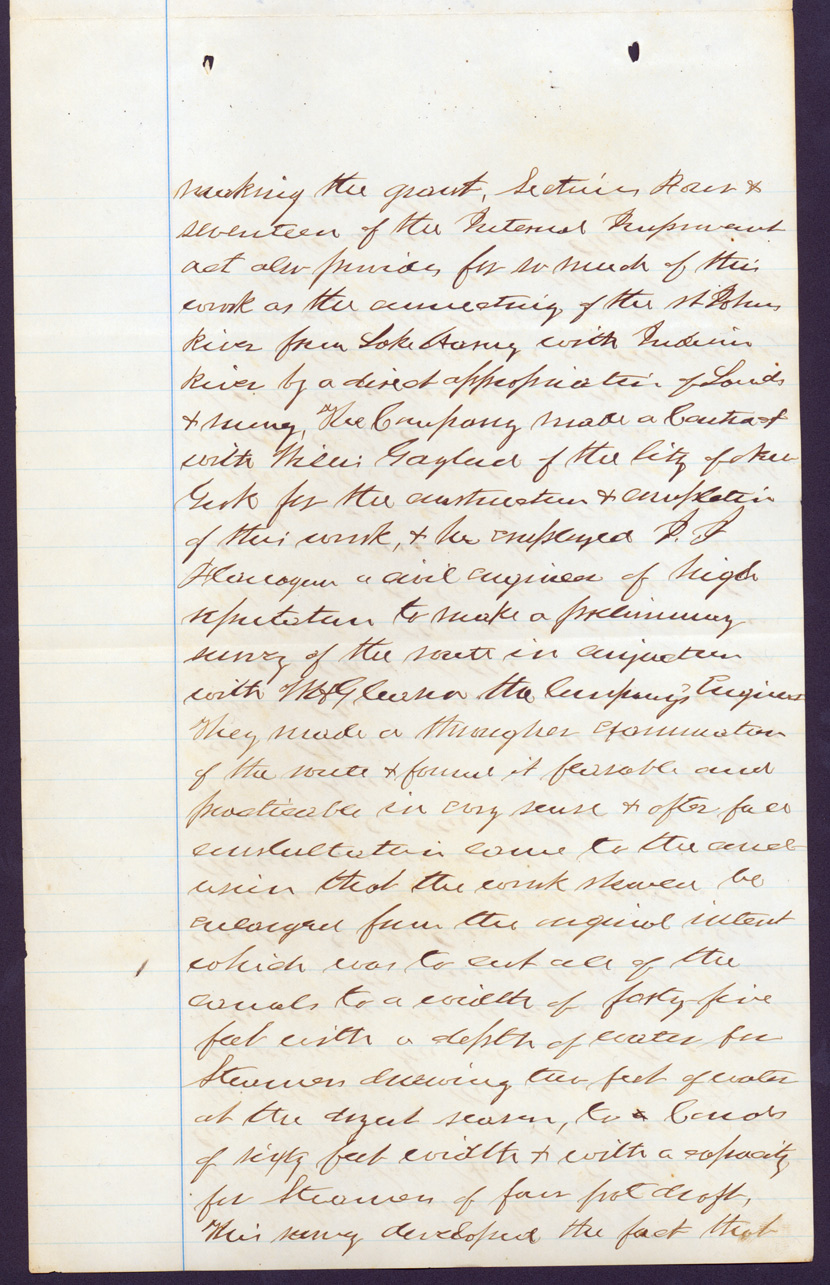 making the grant, Sections Four &
seventeen of the Internal Improvment
act also provides for so much of this
work as the connecting of the St Johns
River from Lake Harney with Indian
River by a direct appropriation of Lands
& money, The Company made a Contract
with Willis Gaylord of the City of New
York for the construction & completion
of this work, & he employed J. J
a civil engineer of high
reputation to make a preliminary
survey of the route in conjuction
with W H Gleason the Company's Engineer
They made a througher examination
of the route & found it feasable and
practicable in evry sense & after full
consultation came to the concl-
usion that the work should be
enlarged from the original intent
which was to cut all of the
canals to a width of forty five
feet with a depth of water for
Steamers drawing two feet of water
at the dryest season, to a Canals
of sixty feet width & with a capacity
for Steamers of four foot draft,
This survey developed the fact that